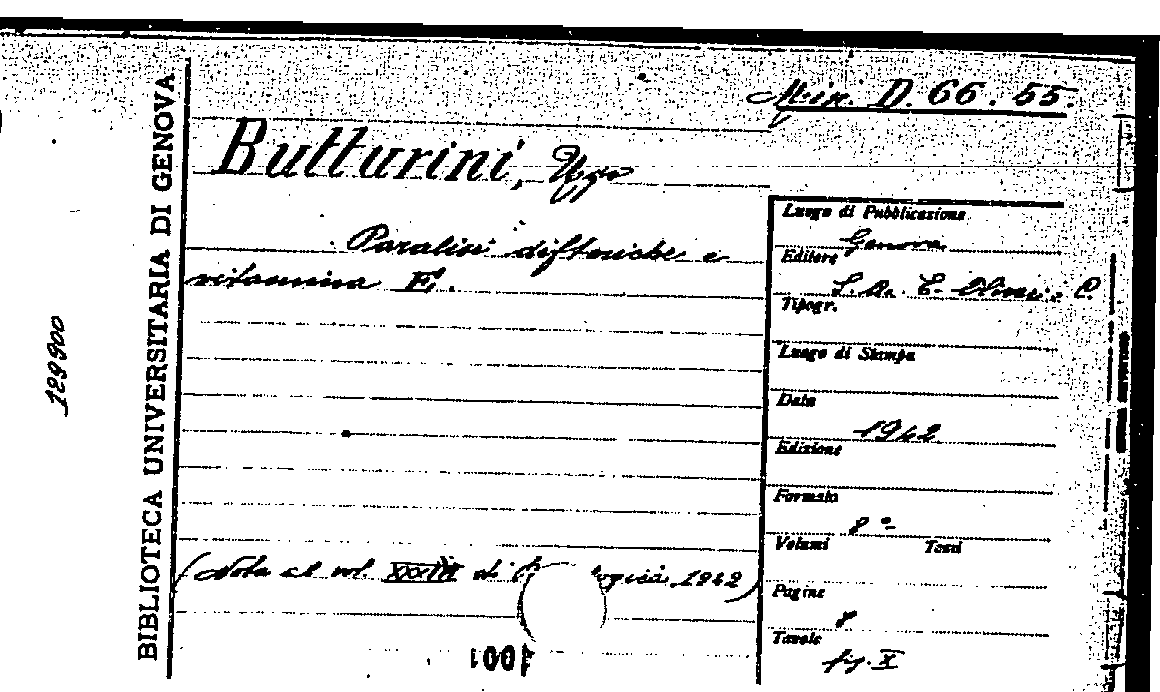 Min. D. 66. 55.
Butturini, Ugo
Paralisi difteriche e
vitamina E.
(Nota al vol. XXXIII di 1942)
1001
BIBLIOTECA UNIVERSITARIA DI GENOVA
129900
Luogo di Pubblicazione
Genova
Editore
S. A. E. Olivieri e C.
Tipogr.
Luogo di Stampa
Data
1942
Edizione
Formato
8°
Volumi Tomi
Pagine
8
Tavole
fig. X